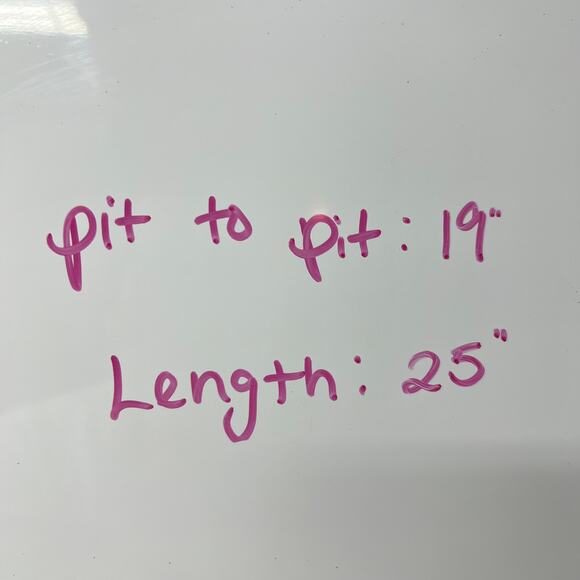 pit to pit: 19"
Length: 25"